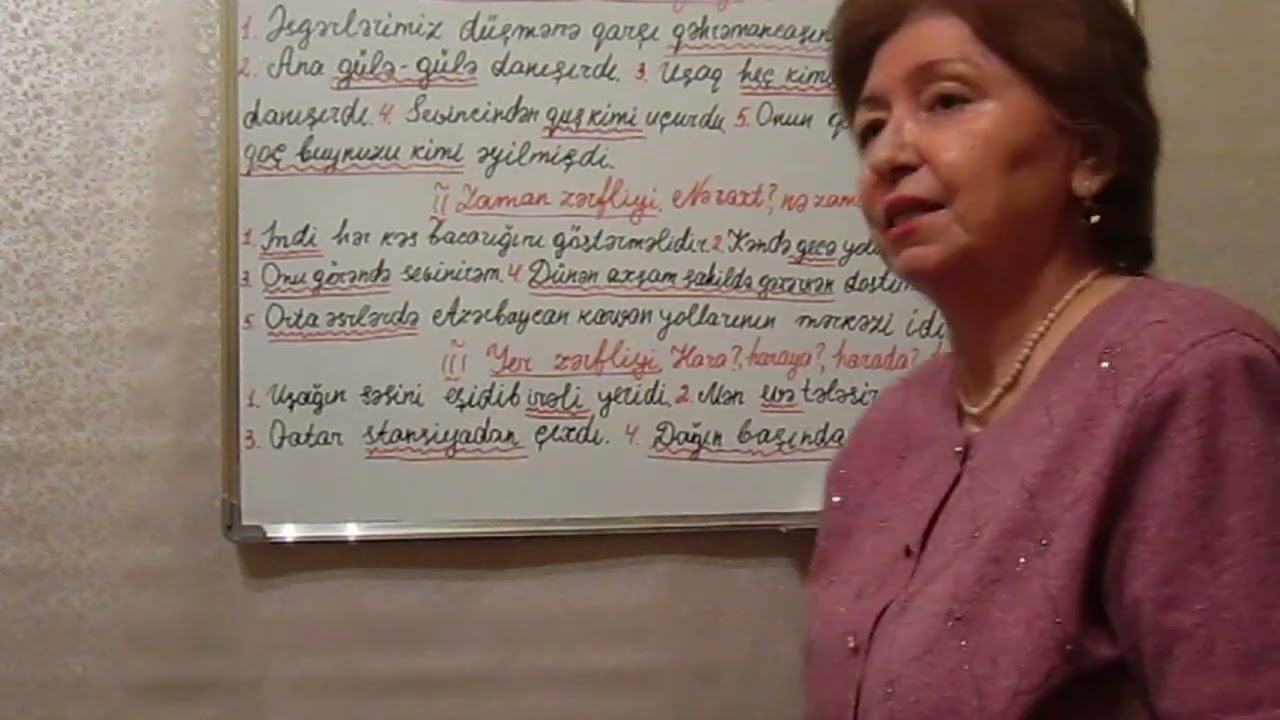 1. Əsgərlərimiz düşmənə qarşı qəhrəmancasın
2. Ana gülə-gülə danışırdı. 3. Uşaq heç kim
danışırdı. 4. Sevincindən quş kimi uçurdu 5. Onun
qoç buynuzu kimi əyilmişdi.
II Zaman zərfliyi. Nə vaxt?, nə zam
1. İndi hər kəs bacarığını göstərməlidir. 2. Kəndə gecə yol
3. Onu görəndə sevinirəm. 4. Dünən axşam sahildə gəzərkən dostum
5. Orta əsrlərdə Azərbaycan karvan yollarının mərkəzi idi
III Yer zərfliyi. Hara?, haraya?, harada?
1. Uşağın səsini eşidib irəli yeridi. 2. Mən evə tələsir
3. Qatar stansiyadan çıxdı. 4. Dağın başında